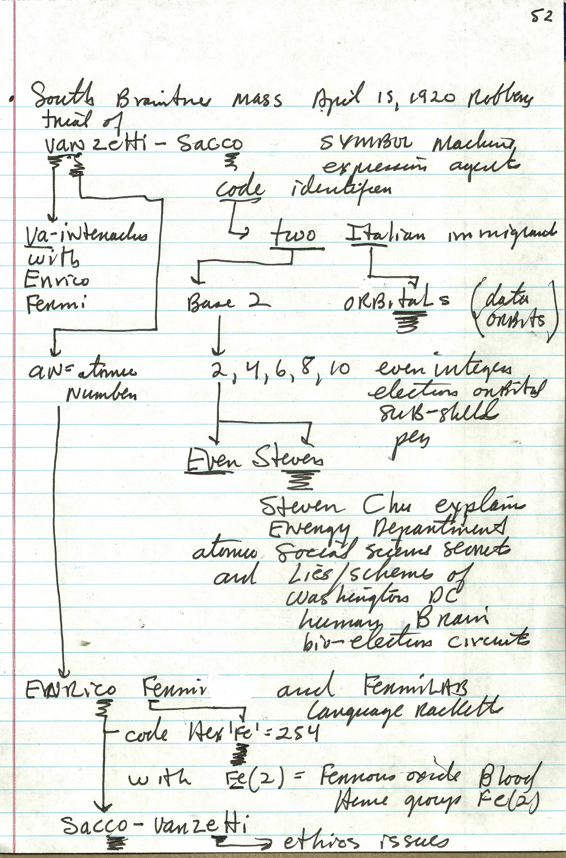 52
• South Braintree Mass April 15, 1920 Robbery
trial of
Vanzetti - Sacco SYMBOL Machine
expression agents
code identifier
two Italian immigrants
Va-interacts
with
Enrico
Fermi
Base 2 ORBitaLs (data
ORBits)
an = atomic
Number
2, 4, 6, 8, 10 even integers
electron orbital
sub-shell
Even Stevens
Steven Chu explain
Energy Department
atomic Social science secrets
and Lies/schemes of
Washington DC
human Brain
bio-electron circuits
ENRico Fermi and FermiLAB
Language Racketts
code Hex 'Fe' = 254
with Fe(2) = Ferrous oxide Blood
Heme group Fe(2)
Sacco - Vanzetti
ethics issues